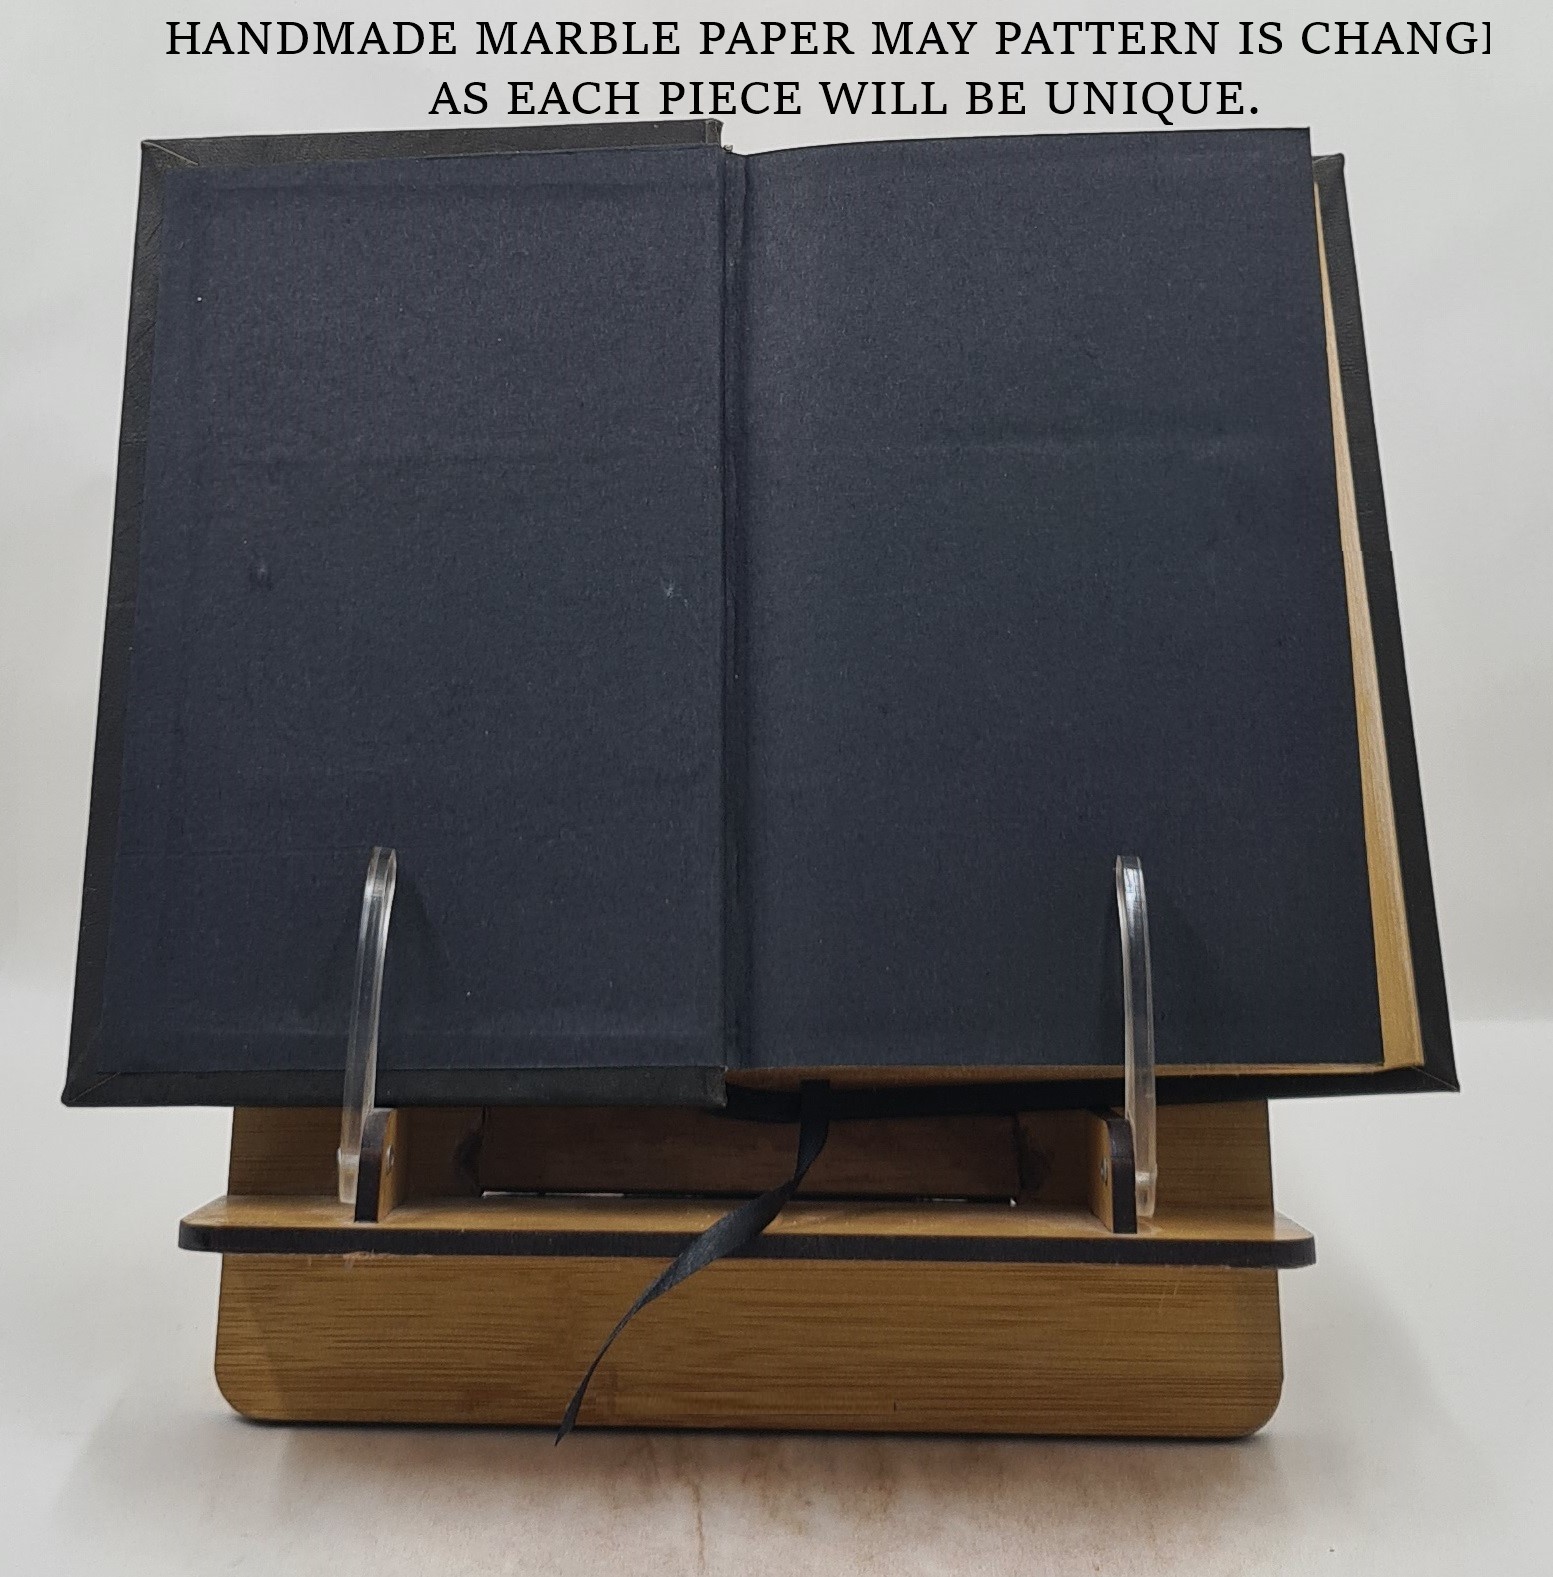 HANDMADE MARBLE PAPER MAY PATTERN IS CHANGI
AS EACH PIECE WILL BE UNIQUE.